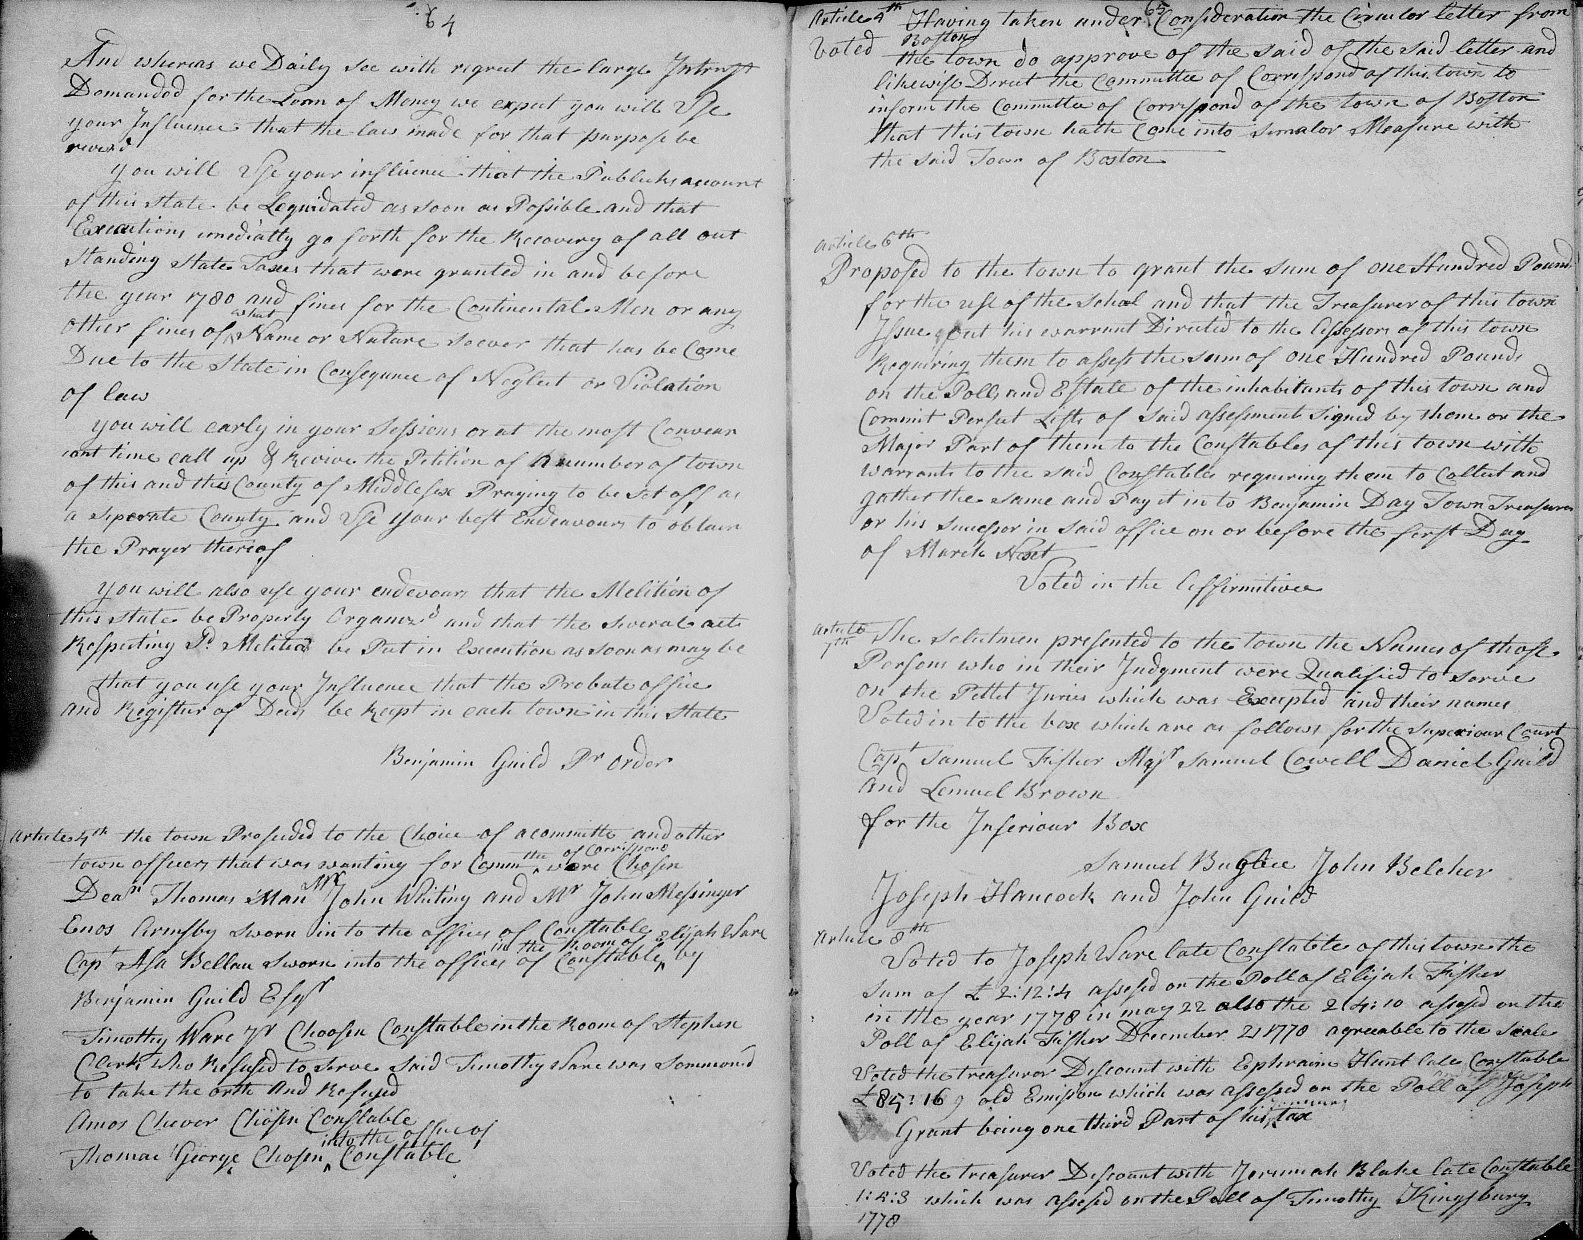 64
And wheras we Daily see with regret the large Intrust
Demanded for the Loan of Money we expect you will Use
your Influence that the law made for that purpose be
reviv'd
you will Use your influence that the Publicks account
of this State be Lequidated as soon as Possible and that
Executions imediatly go forth for the Recovery of all out
Standing State Taxes that were granted in and before
the year 1780 and fines for the Continental Men or any
other fines of what Name or Nature soever that has be Come
Due to the State in Consequence of Neglect or Violation
of law
you will early in your Sessions or at the most Conven
iant time call up & Revive the Petition of a number of town
of this and the County of Middlesex Praying to be Set off as
a Seperate County and Use your best Endeavours to obtain
the Prayer thereof
you will also use your endevours that the Melition of
this State be Properly Organiz'd and that the Several acts
Respecting Sd Melitia be Put in Execution as soon as may be
that you use your Influence that the Probate office
and Register of Deeds be Keept in each town in this State
Benjamin Guild Pr order
Article 4th the town Proseded to the Choice of a committe and other
town officers that was wanting for Commttee of Corrispond were Chosen
Dean Thomas Man Mr John Whiting and Mr John Messinger
Enos Armsby Sworn in to the offices of Constable in the Room of Elijah Ware
Capt Asa Bellau Sworn into the offices of Constable by
Benjamin Guild Esqr
Timothy Ware Jr Choosen Constable in the Room of Stephen
Clark who Refused to Serve Said Timothy Ware was Sommon'd
to take the orth And Refused
Amos Chever Chosen Constable
Thomas George Chosen into the office of Constable
65
Article 4th Having taken under Consideration the Circulor letter from Boston
Voted the town do approve of the Said of the Said letter and
likewise Direct the Committee of Correspond of this town to
inform the Committee of Correspond of the town of Boston
that this town hath Come into Simalor Measure with
the Said Town of Boston
Article 6th
Proposed to the town to grant the Sum of one Hundred Pound
for the use of the School and that the Treasurer of this town
Issue out his warrant Directed to the Assessors of this town
Requiring them to assess the Sum of one Hundred Pounds
on the Polls and Estate of the inhabitants of this town and
Commit Perfect Lists of Said assessment Signed by them or the
Major Part of them to the Constables of this town with
warrants to the said Constables requiring them to Collect and
gather the Same and Pay it in to Benjamin Day Town Treasurer
or his Successor in Said office on or before the first Day
of March Next
Voted in the Affirmitive
Article 7th The Selectmen presented to the town the Names of those
Persons who in their Judgment were Qualified to Serve
on the Pettit Juries which was Excepted and their names
Voted in to the box which are as follows for the Superiour Court
Capt Samuel Fisher Majr Samuel Cowell Daniel Guild
And Lemuel Brown
for the Inferiour Box
Samuel Bugbee John Belcher
Joseph Hancock and John Guild
Article 8th
Voted to Joseph Ware late Constable of this town the
Sum of £ 2:12:4 assesed on the Poll of Elijah Fisher
in the year 1778 in may 22 also the 2:4:10 assesed on the
Poll of Elijah Fisher December 21 1778 agreeable to the Scale
Voted the treasuror Discount with Ephraim Hunt late Constable
£85:16 old Emision which was assesed on the Poll of Joseph
Grant being one third Part of his tax
Voted the treasurer Discount with Jeremiah Blake late Constable
1:4:3 which was assesed on the Poll of Timothy Kingsbury
1778